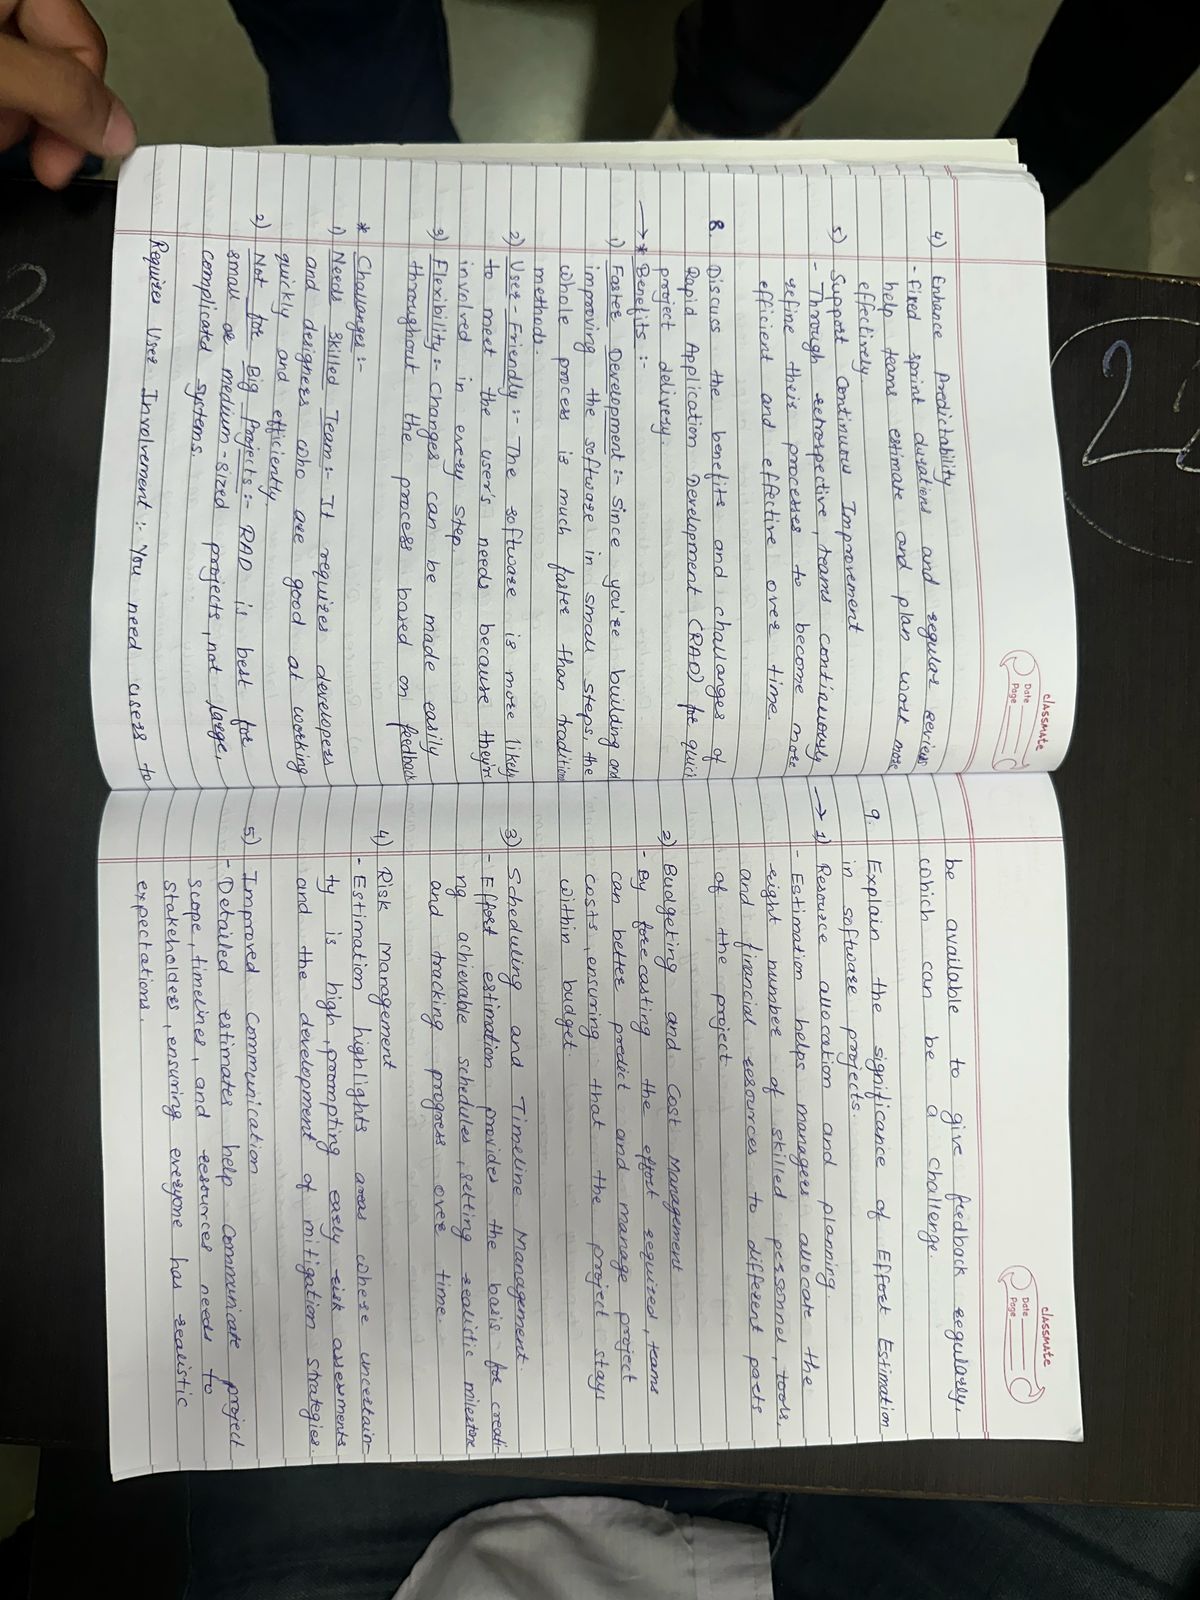 classmate
Date
Page
4) Enhance Predictability
- Fixed sprint durations and regular reviews
help teams estimate and plan work more
effectively.
5) Support Continuous Improvement
- Through retrospective, teams continuously
refine their processes to become more
efficient and effective over time.
8. Discuss the benefits and challanges of
Rapid Application Development (RAD) for quick
project delivery.
→ * Benefits :-
1) Faster Development :- Since you're building and
improving the software in small steps, the
whole process is much faster than tradition
methods.
2) User-Friendly :- The software is more likely
to meet the user's needs because they're
involved in every step.
3) Flexibility :- Changes can be made easily
throughout the process based on feedback
* Challanges :-
1) Needs Skilled Team :- It requires developers
and designers who are good at working
quickly and efficiently.
2) Not for Big Projects :- RAD is best for
small or medium-sized projects, not large,
complicated systems.
Requires User Involvement :- You need users to
classmate
Date
Page
be available to give feedback regularly,
which can be a challenge.
9. Explain the significance of Effort Estimation
in software projects.
→ 1) Resource allocation and planning.
- Estimation helps managers allocate the
right number of skilled personnel, tools,
and financial resources to different parts
of the project
2) Budgeting and Cost Management
- By forecasting the effort required, teams
can better predict and manage project
costs, ensuring that the project stays
within budget.
3) Scheduling and Timeline Management.
- Effort estimation provides the basis for creati-
ng achievable schedules, setting realistic milestone
and tracking progress over time.
4) Risk Management
- Estimation highlights areas where uncertain-
ty is high, prompting early risk assessments
and the development of mitigation strategies.
5) Improved Communication
- Detailed estimates help communicate project
scope, timelines, and resources needs to
stakeholders, ensuring everyone has realistic
expectations.